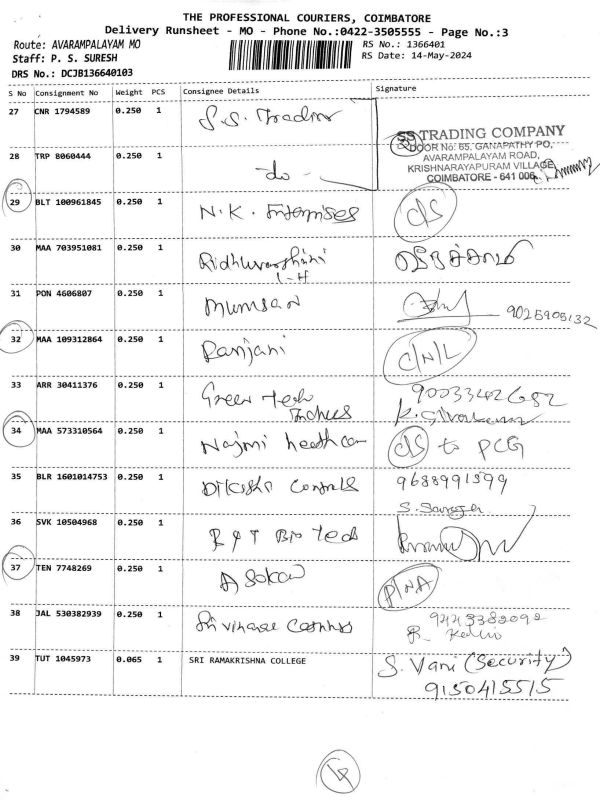 THE PROFESSIONAL COURIERS, COIMBATORE
Delivery Runsheet - MO - Phone No.:0422-3505555 - Page No.:3
Route: AVARAMPALAYAM MO
RS No.: 1366401
Staff: P. S. SURESH
RS Date: 14-May-2024
DRS No.: DCJB136640103
S No Consignment No Weight PCS Consignee Details Signature
27 CNR 1794589 0.250 1 S.S. Trading
SS TRADING COMPANY
DOOR No: 65, GANAPATHY PO,
AVARAMPALAYAM ROAD,
KRISHNARAYAPURAM VILLAGE
COIMBATORE - 641 006.
28 TRP 8060444 0.250 1 -do-
29 BLT 100961845 0.250 1 N.K. Enterprises D/S
30 MAA 703951081 0.250 1
31 PON 4606807 0.250 1 Mumsan 9025905132
32 MAA 109312864 0.250 1 Ranjani C/N/L
33 ARR 30411376 0.250 1 Green Tech 9003342652
34 MAA 573310564 0.250 1 Najmi D/S to PCG
35 BLR 1601014753 0.250 1 Controls 9688991599
36 SVK 10504968 0.250 1 Bio Tech
37 TEN 7748269 0.250 1 Asokan P/NA
38 JAL 530382939 0.250 1 9443382092
39 TUT 1045973 0.065 1 SRI RAMAKRISHNA COLLEGE S. Vani (Security)
9150415515